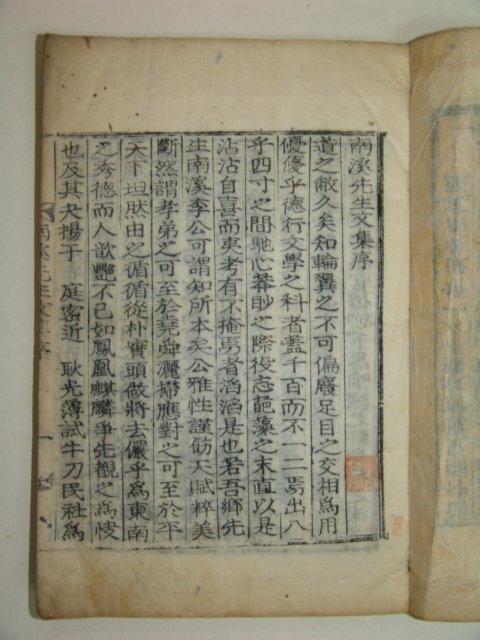 南溪先生文集序
道之敝久矣知輪翼之不可偏廢足目之交相爲用
優優乎德行文學之科者蓋千百而不一二焉出入
乎四寸之間馳心莽眇之際役志葩藻之末直以是
沾沾自喜而矣考有不掩焉者滔滔是也若吾鄕先
生南溪李公可謂知所本矣公雅性謹勑天賦粹美
斷然謂孝弟之可至於堯舜灑掃應對之可至於平
天下坦然由之循循從朴實頭做將去儼乎爲東南
之秀德而人歆艶不已如鳳凰麒麟爭先覩之爲快
也及其夬揚于 庭密近 耿光薄試牛刀民社爲
南溪先生文集序 一